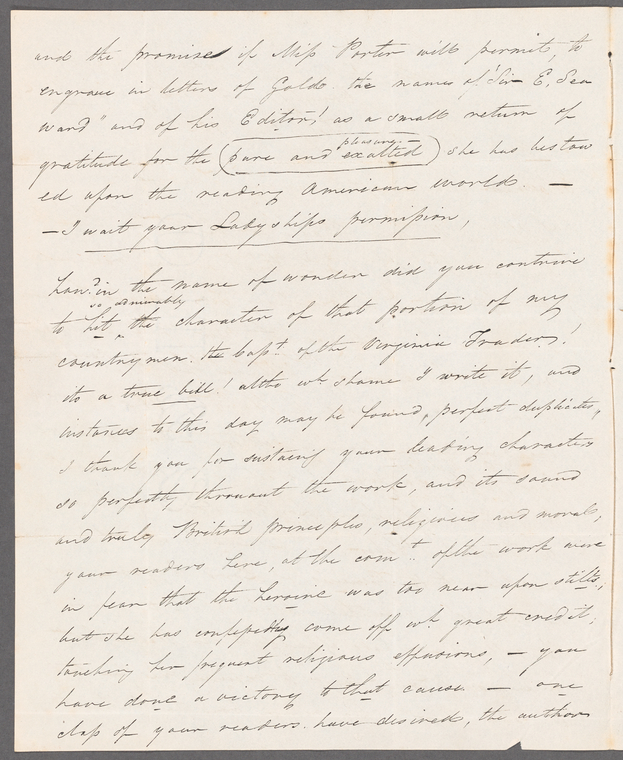 and the promise if Miss Porter will permit, to
engrave in letters of Gold the names of "Sir E. Sea
ward" and of his Editor! as a small return of
gratitude for the (pure and exalted pleasure) she has bestow
ed upon the reading American world. —
— I wait your Ladyships permission,
how? in the name of wonder did you contrive
to hit so admirably the character of that portion of my
countrymen. the Capt. of the Virginia Traders!
its a true bill! altho wh shame I write it, and
instances to this day may be found, perfect duplicates,
I thank you for sustaing your leading characters
so perfectly throughout the work, and its sound
and truly British principles, religious and moral,
your readers here, at the comt. of the work were
in fear that the heroine was too near upon stilts,
but she has confessedly come off wh great credit;
touching her frequent religious effusions, — you
have done a victory to that cause — one
class of your readers have desired, the author